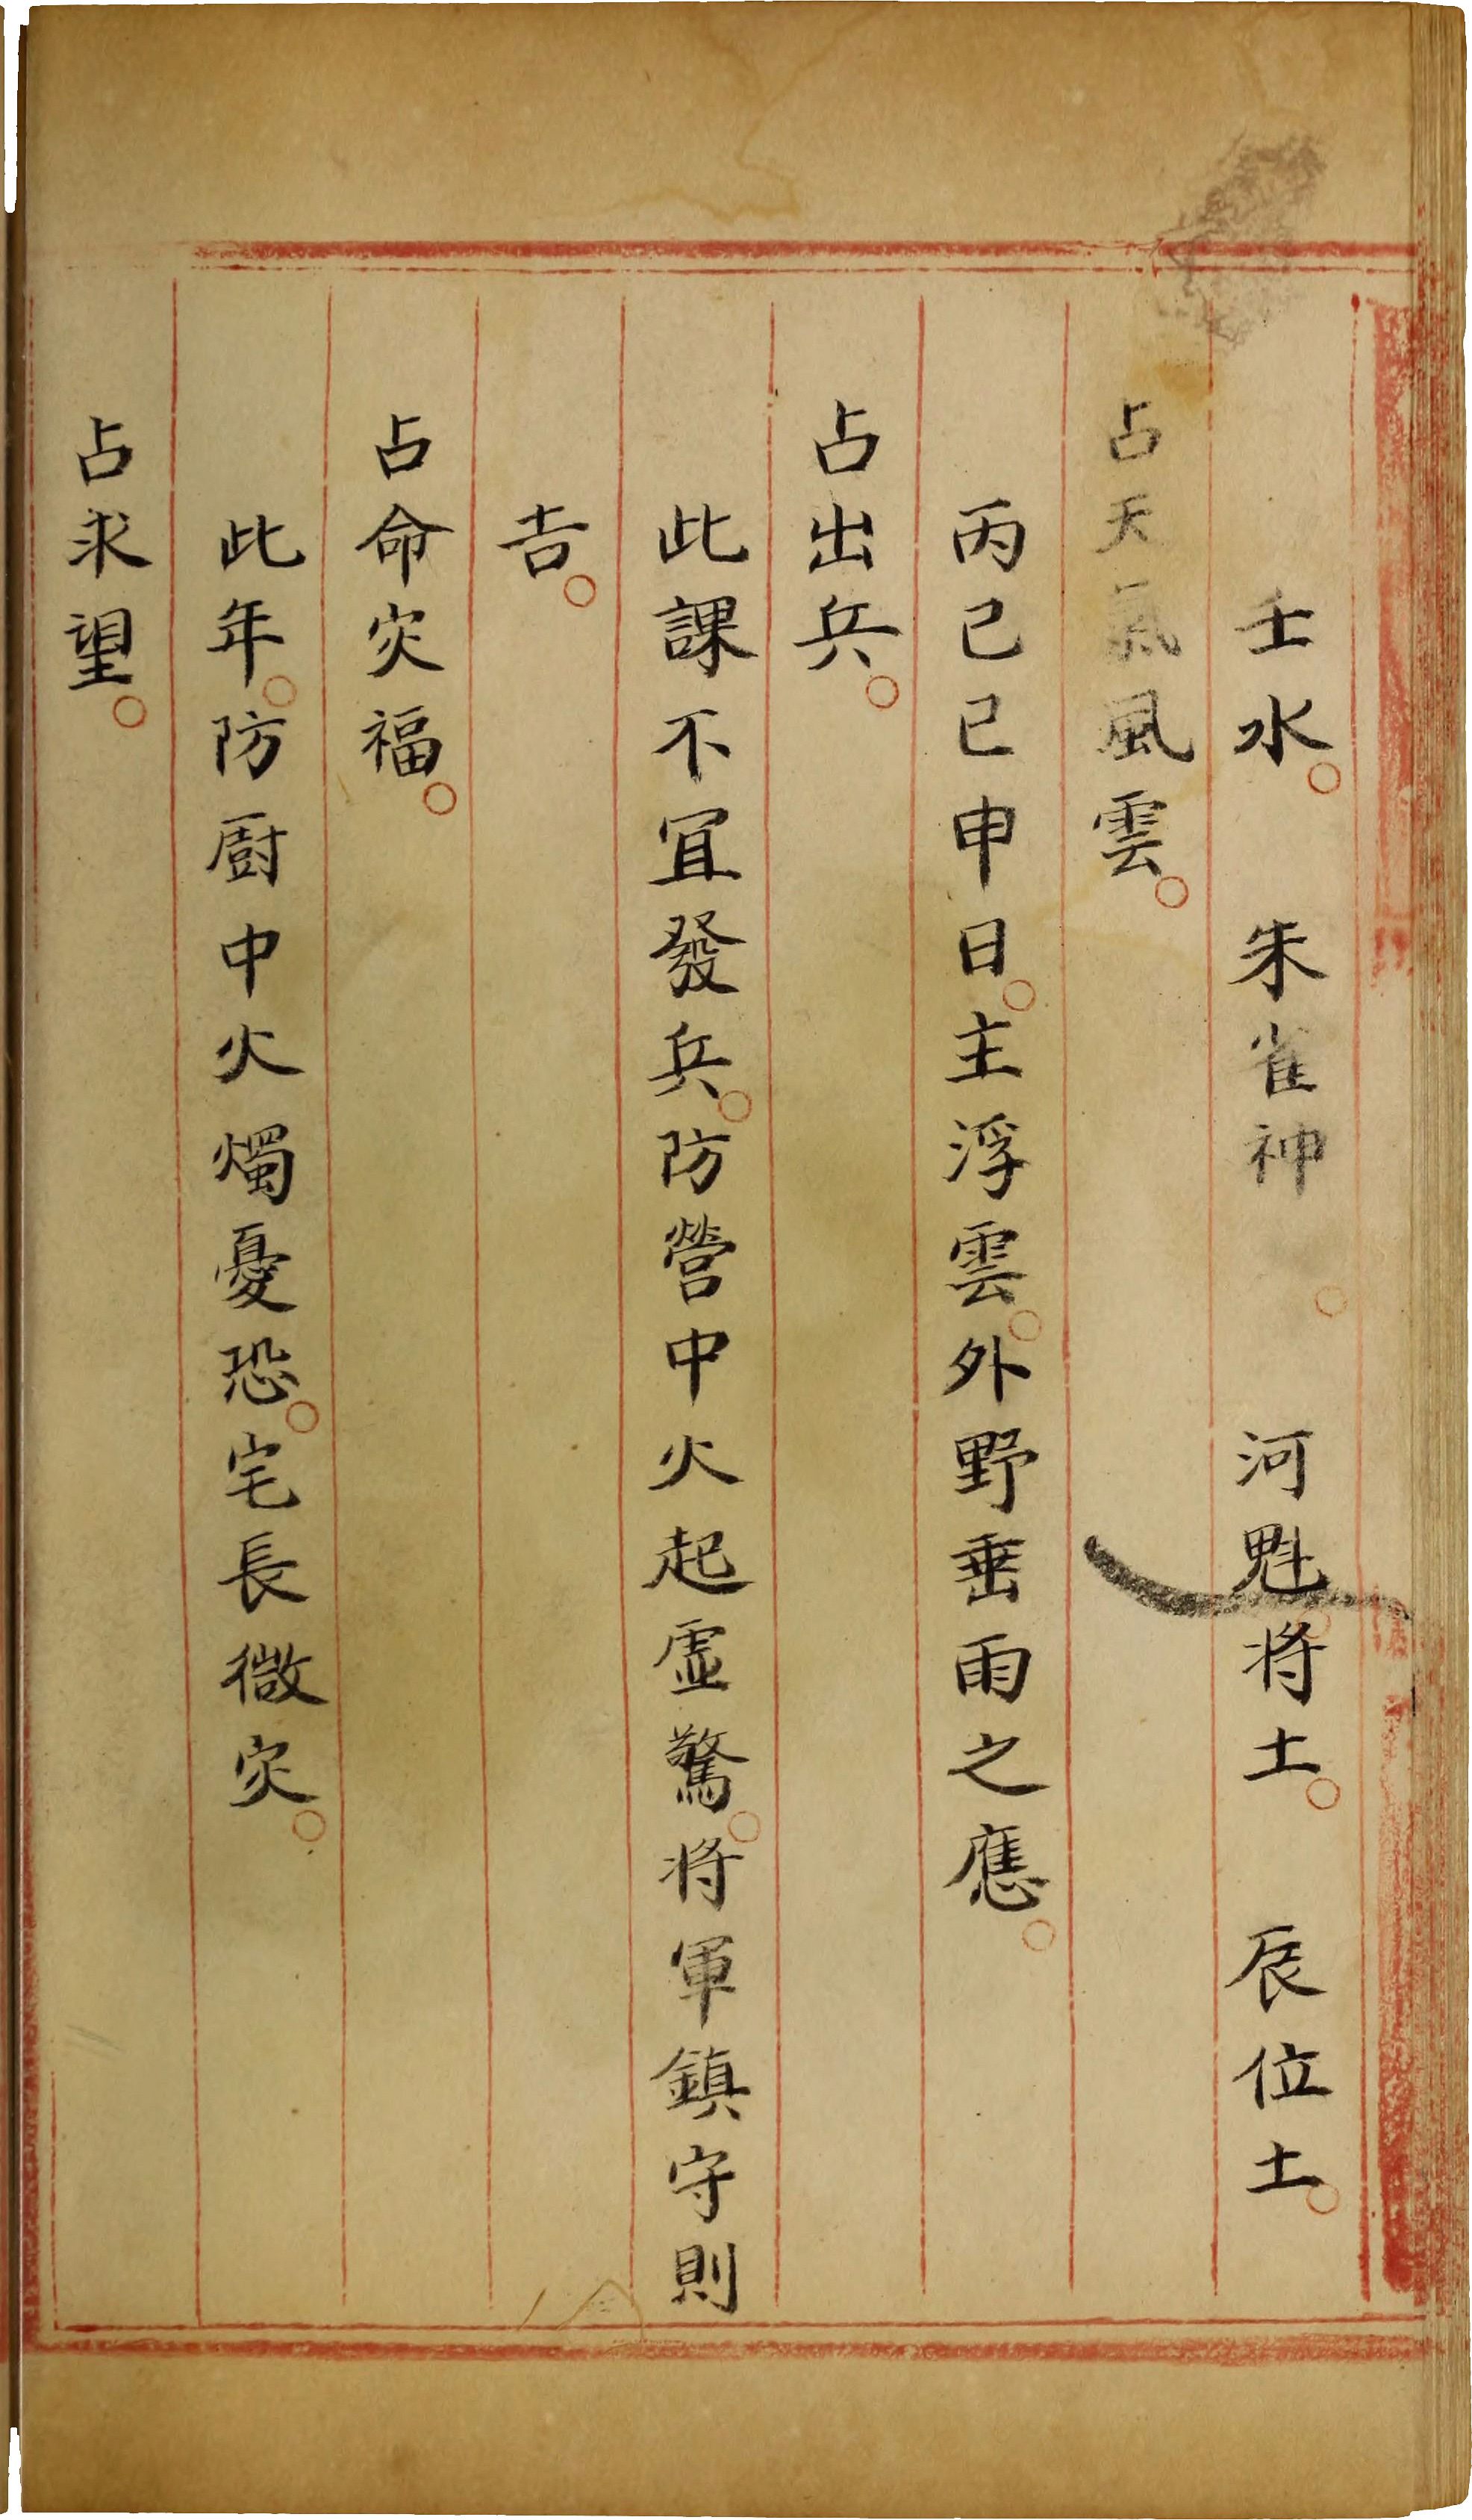 壬水。　朱雀神　。　河魁將土。　辰位土。
占天氣風雲。
丙己巳申日。主浮雲。外野垂雨之應。
占出兵。
此課不宜發兵。防營中火起虛驚。將軍鎮守則
吉。
占命灾福。
此年。防廚中火燭憂恐。宅長微灾。
占求望。